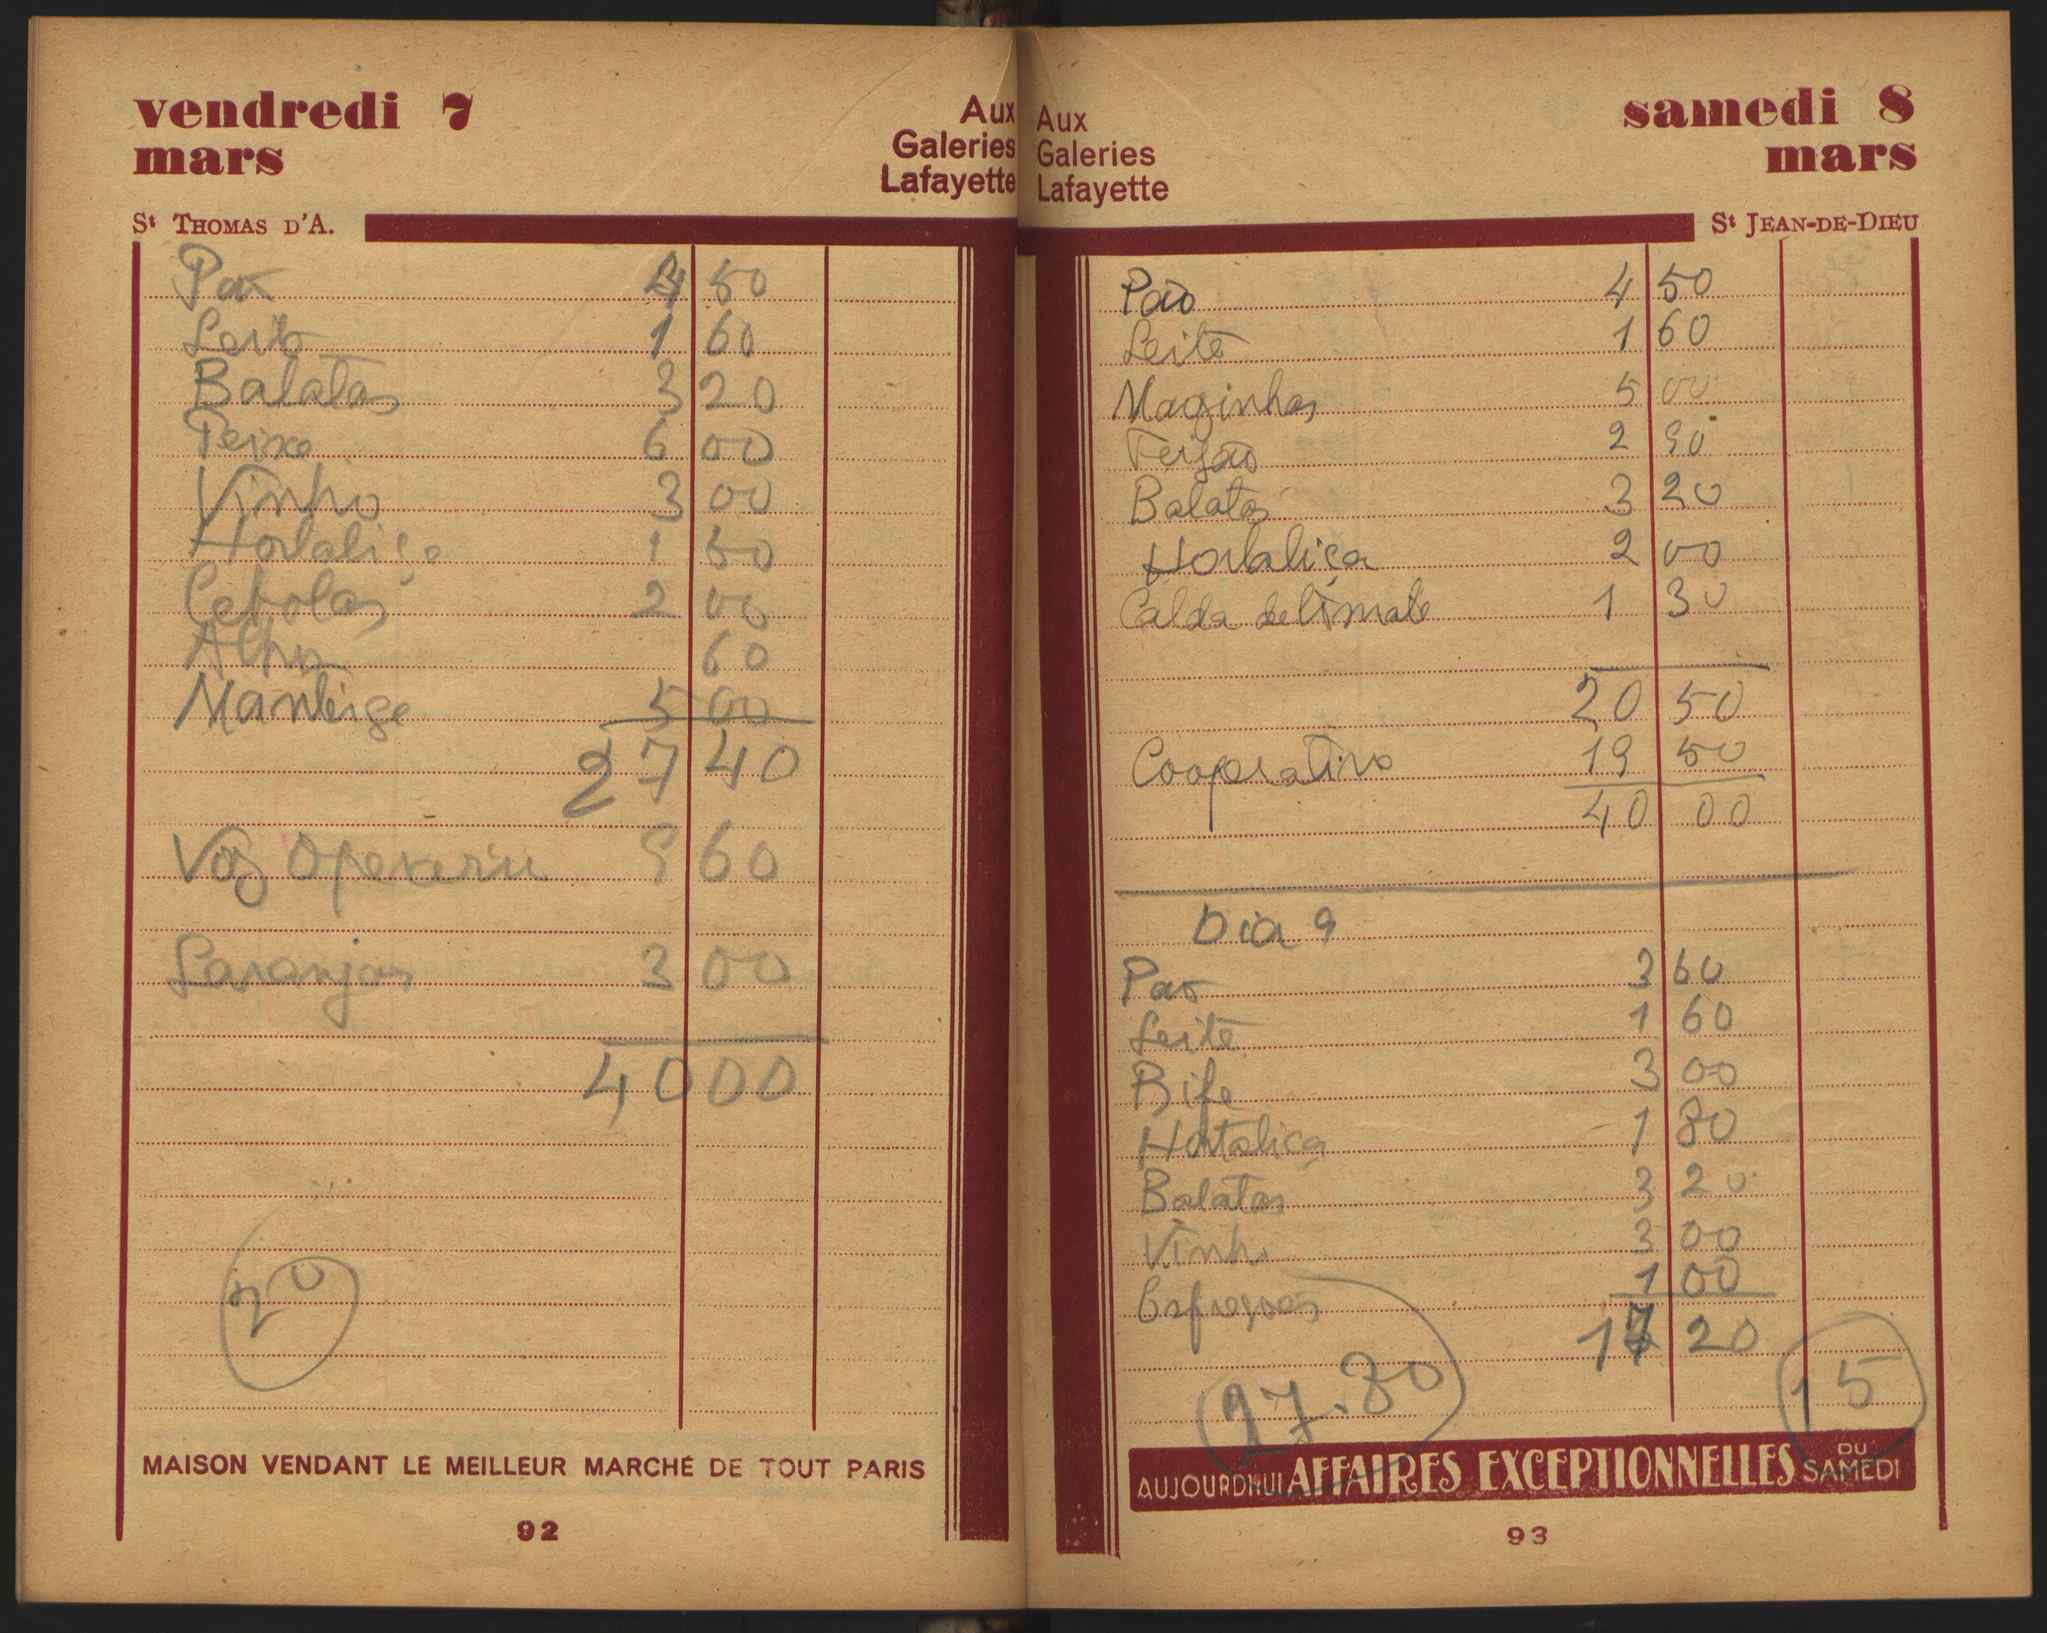 vendredi 7
mars
Aux
Galeries
Lafayette
St THOMAS D'A.
Pão 4 50
Leite 1 60
Batatas 3 20
Peixe 6 00
Vinho 3 00
Hortaliça 1 50
Cebolas 2 00
Alhos 60
Manteiga 5 00
27 40
Voz Operario 9 60
Laranjas 3 00
40 00
20
MAISON VENDANT LE MEILLEUR MARCHÉ DE TOUT PARIS
92
Aux
Galeries
Lafayette
samedi 8
mars
St JEAN-DE-DIEU
Pão 4 50
Leite 1 60
Maginhos 5 00
Feijão 2 90
Batatas 3 20
Hortaliça 2 00
Calda de Tomate 1 30
20 50
Cooperativa 19 50
40 00
Dia 9
Pão 3 60
Leite 1 60
Bife 3 00
Hortaliça 1 80
Batatas 3 20
Vinho 3 00
Esfregões 1 00
17 20
27.30
15
AUJOURD'HUI AFFAIRES EXCEPTIONNELLES DU SAMEDI
93